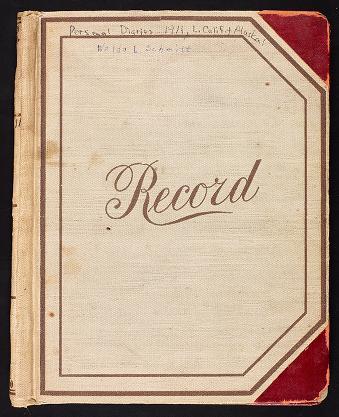 Personal Diaries 1911, L. Calif & Alaska
Waldo L. Schmitt
Record